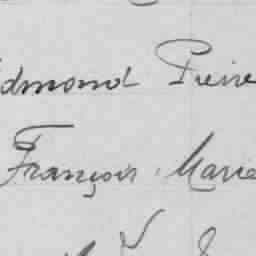 Edmond Pierre
François Marie